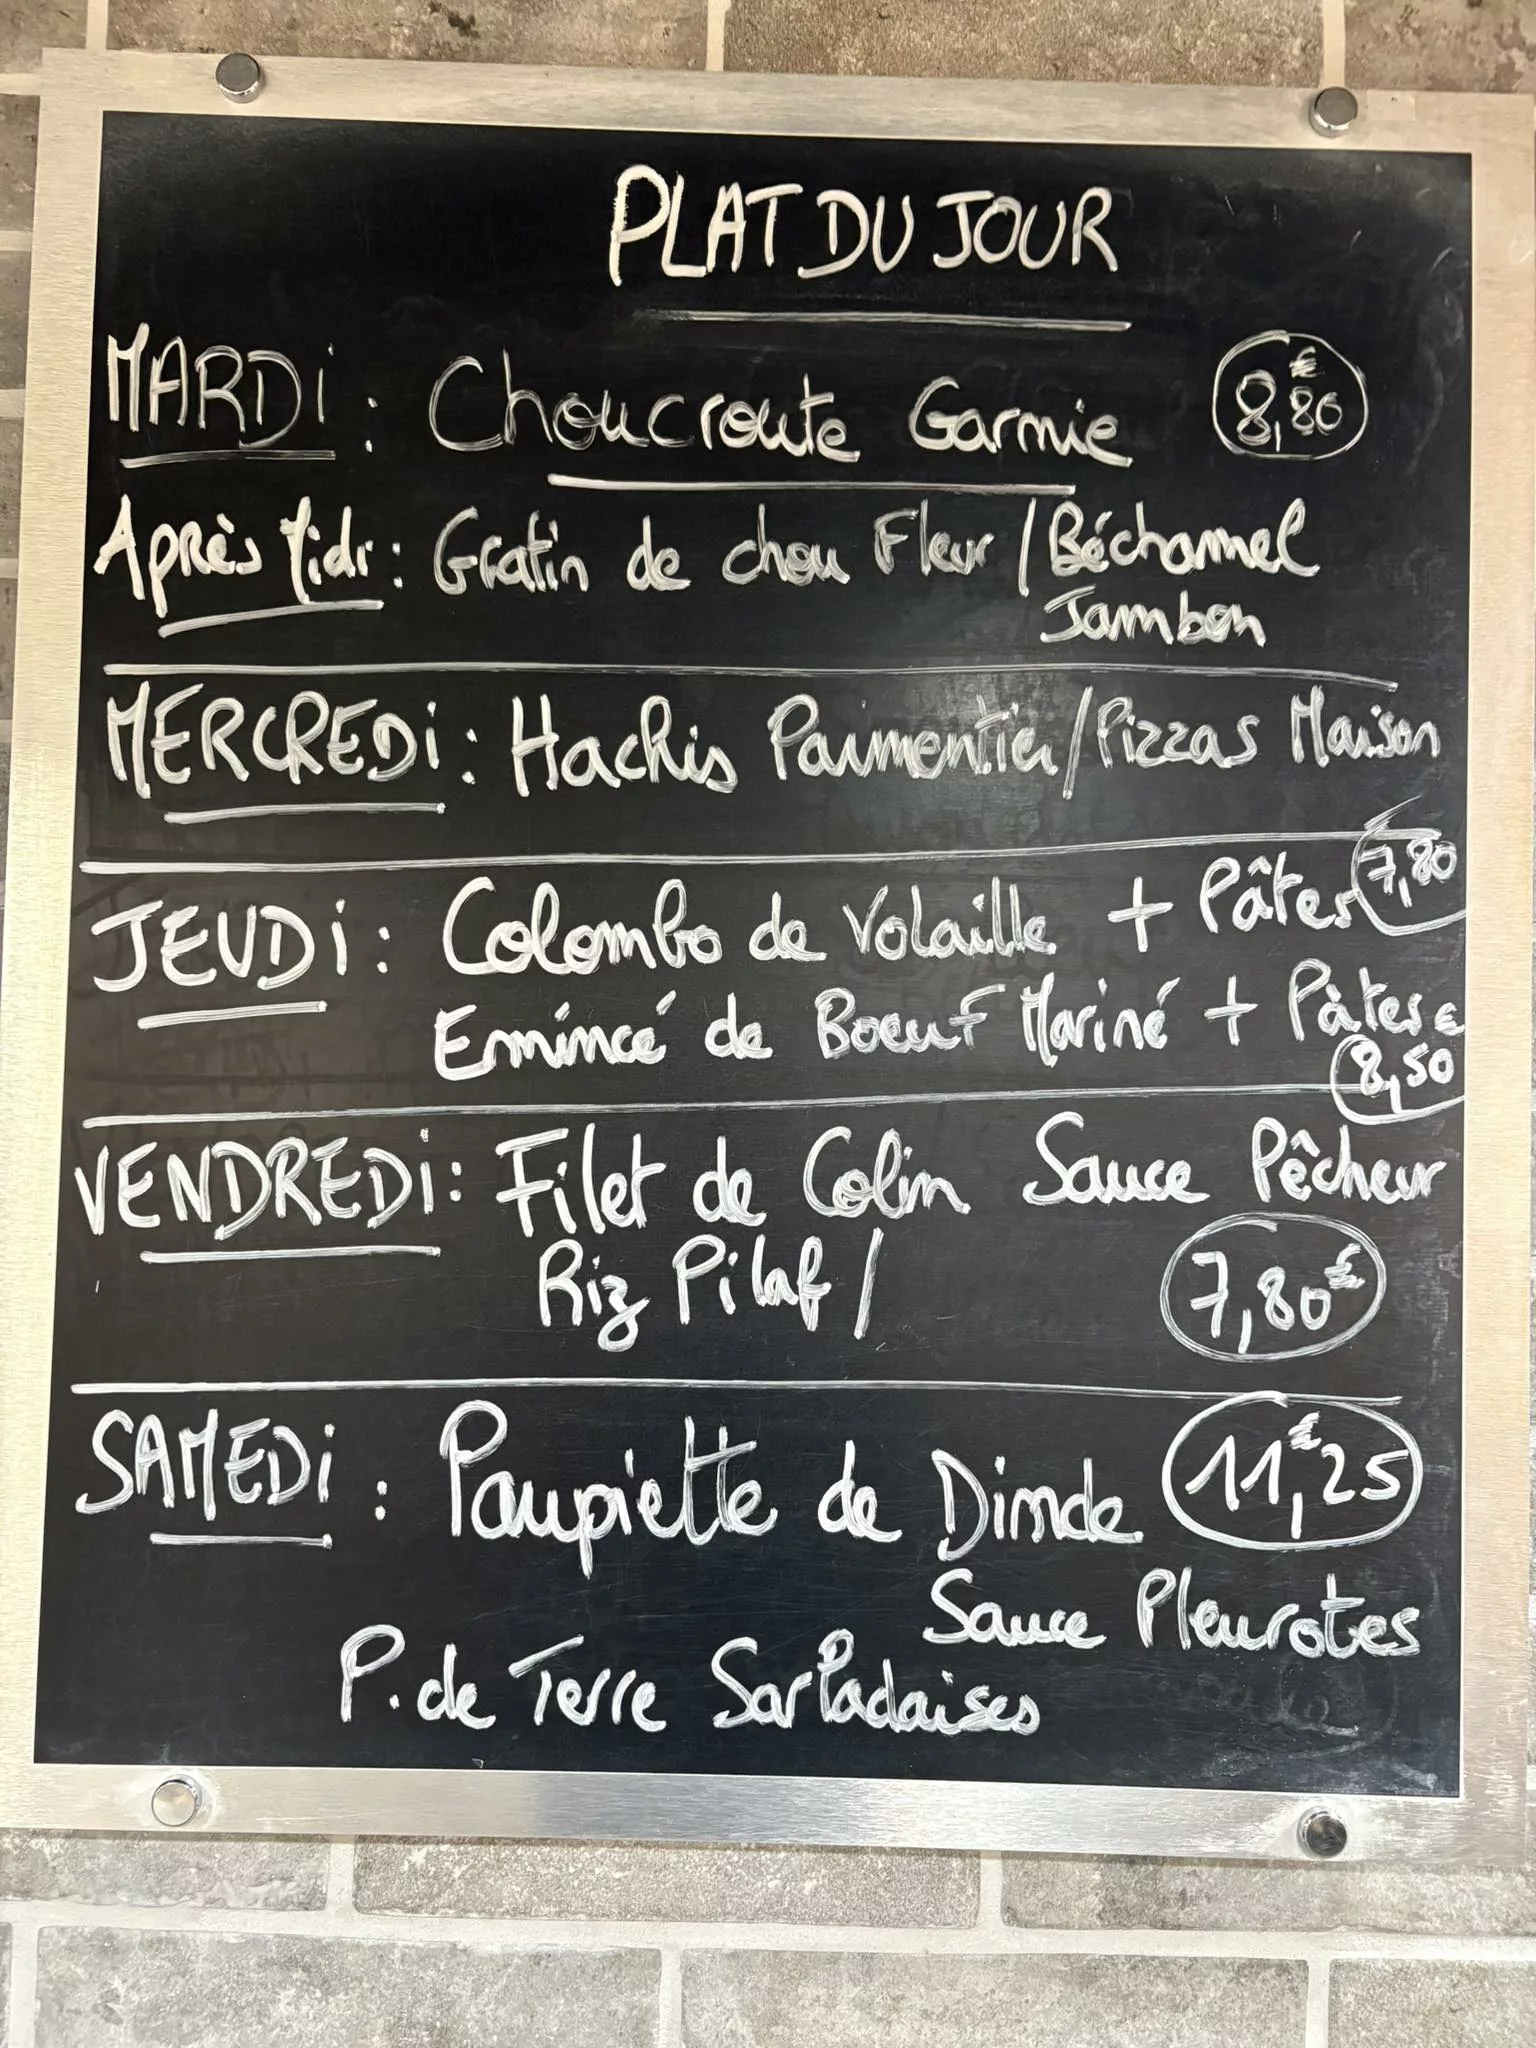 PLAT DU JOUR
MARDi : Choucroute Garnie 8,80€
Après Midi : Gratin de chou Fleur / Béchamel
Jambon
MERCREDi : Hachis Parmentier / Pizzas Maison
JEUDi : Colombo de Volaille + Pâtes 7,80
Emincé de Boeuf Mariné + Pàtes €
8,50
VENDREDi : Filet de Colin Sauce Pêcheur
Riz Pilaf / 7,80€
SAMEDi : Paupiette de Dinde 11,25€
Sauce Pleurotes
P. de Terre SarPadaises